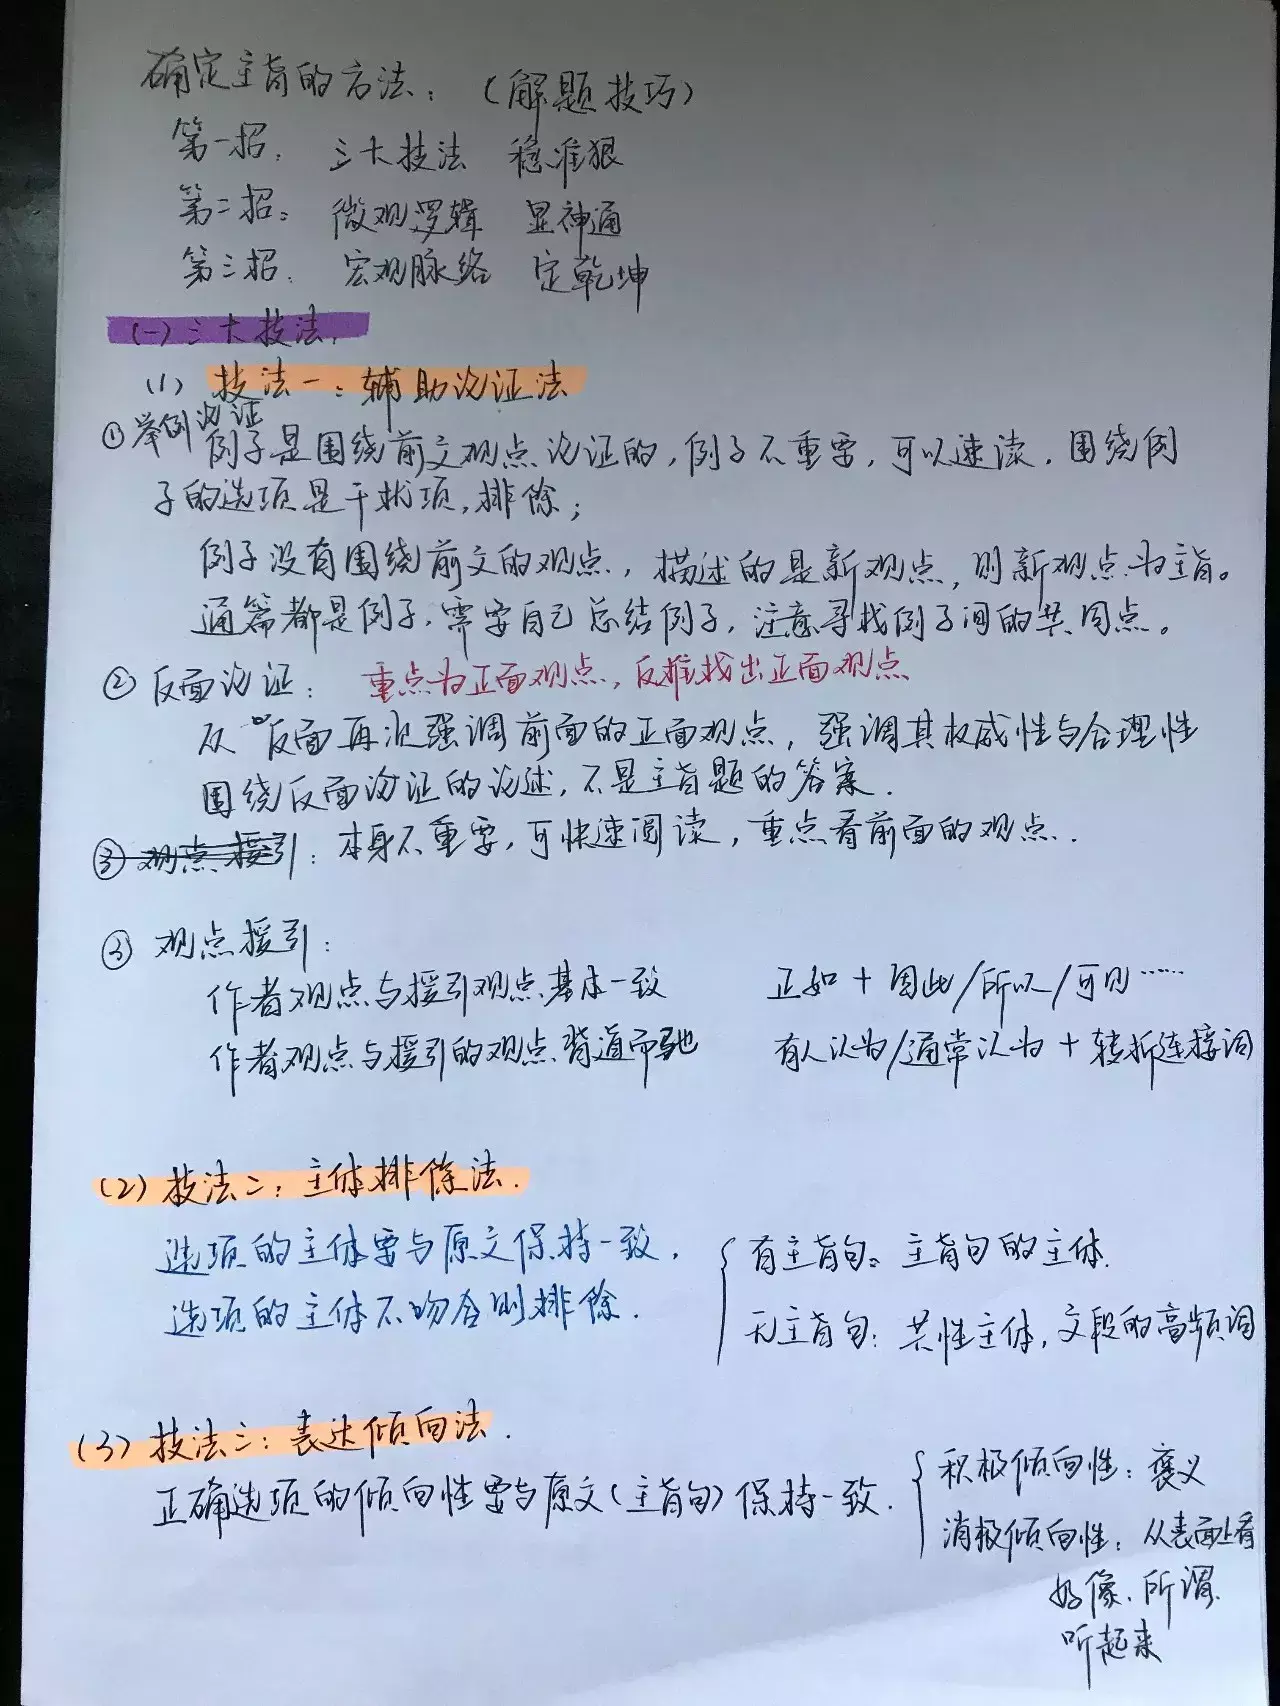 确定主旨的方法：（解题技巧）
第一招：三大技法 稳准狠
第二招：微观逻辑 显神通
第三招：宏观脉络 定乾坤
(一)三大技法：
(1) 技法一：辅助论证法
①举例论证
例子是围绕前文观点论证的，例子不重要，可以速读，围绕例
子的选项是干扰项，排除；
例子没有围绕前文的观点，描述的是新观点，则新观点为主旨。
通篇都是例子，需要自己总结例子，注意寻找例子间的共同点。
②反面论证：重点为正面观点，反推找出正面观点
从反面再次强调前面的正面观点，强调其权威性与合理性
围绕反面论证的论述，不是主旨题的答案．
③观点援引：本身不重要，可快速阅读，重点看前面的观点．
③观点援引：
作者观点与援引观点基本一致 正如＋因此/所以/可见……
作者观点与援引的观点背道而驰 有人认为/通常认为＋转折连接词
(2) 技法二：主体排除法．
选项的主体要与原文保持一致， 有主旨句：主旨句的主体．
选项的主体不吻合则排除． 无主旨句：共性主体，文段的高频词
(3) 技法三：表达倾向法．
正确选项的倾向性要与原文(主旨句)保持一致． 积极倾向性：褒义
消极倾向性：从表面上看
好像．所谓．
听起来